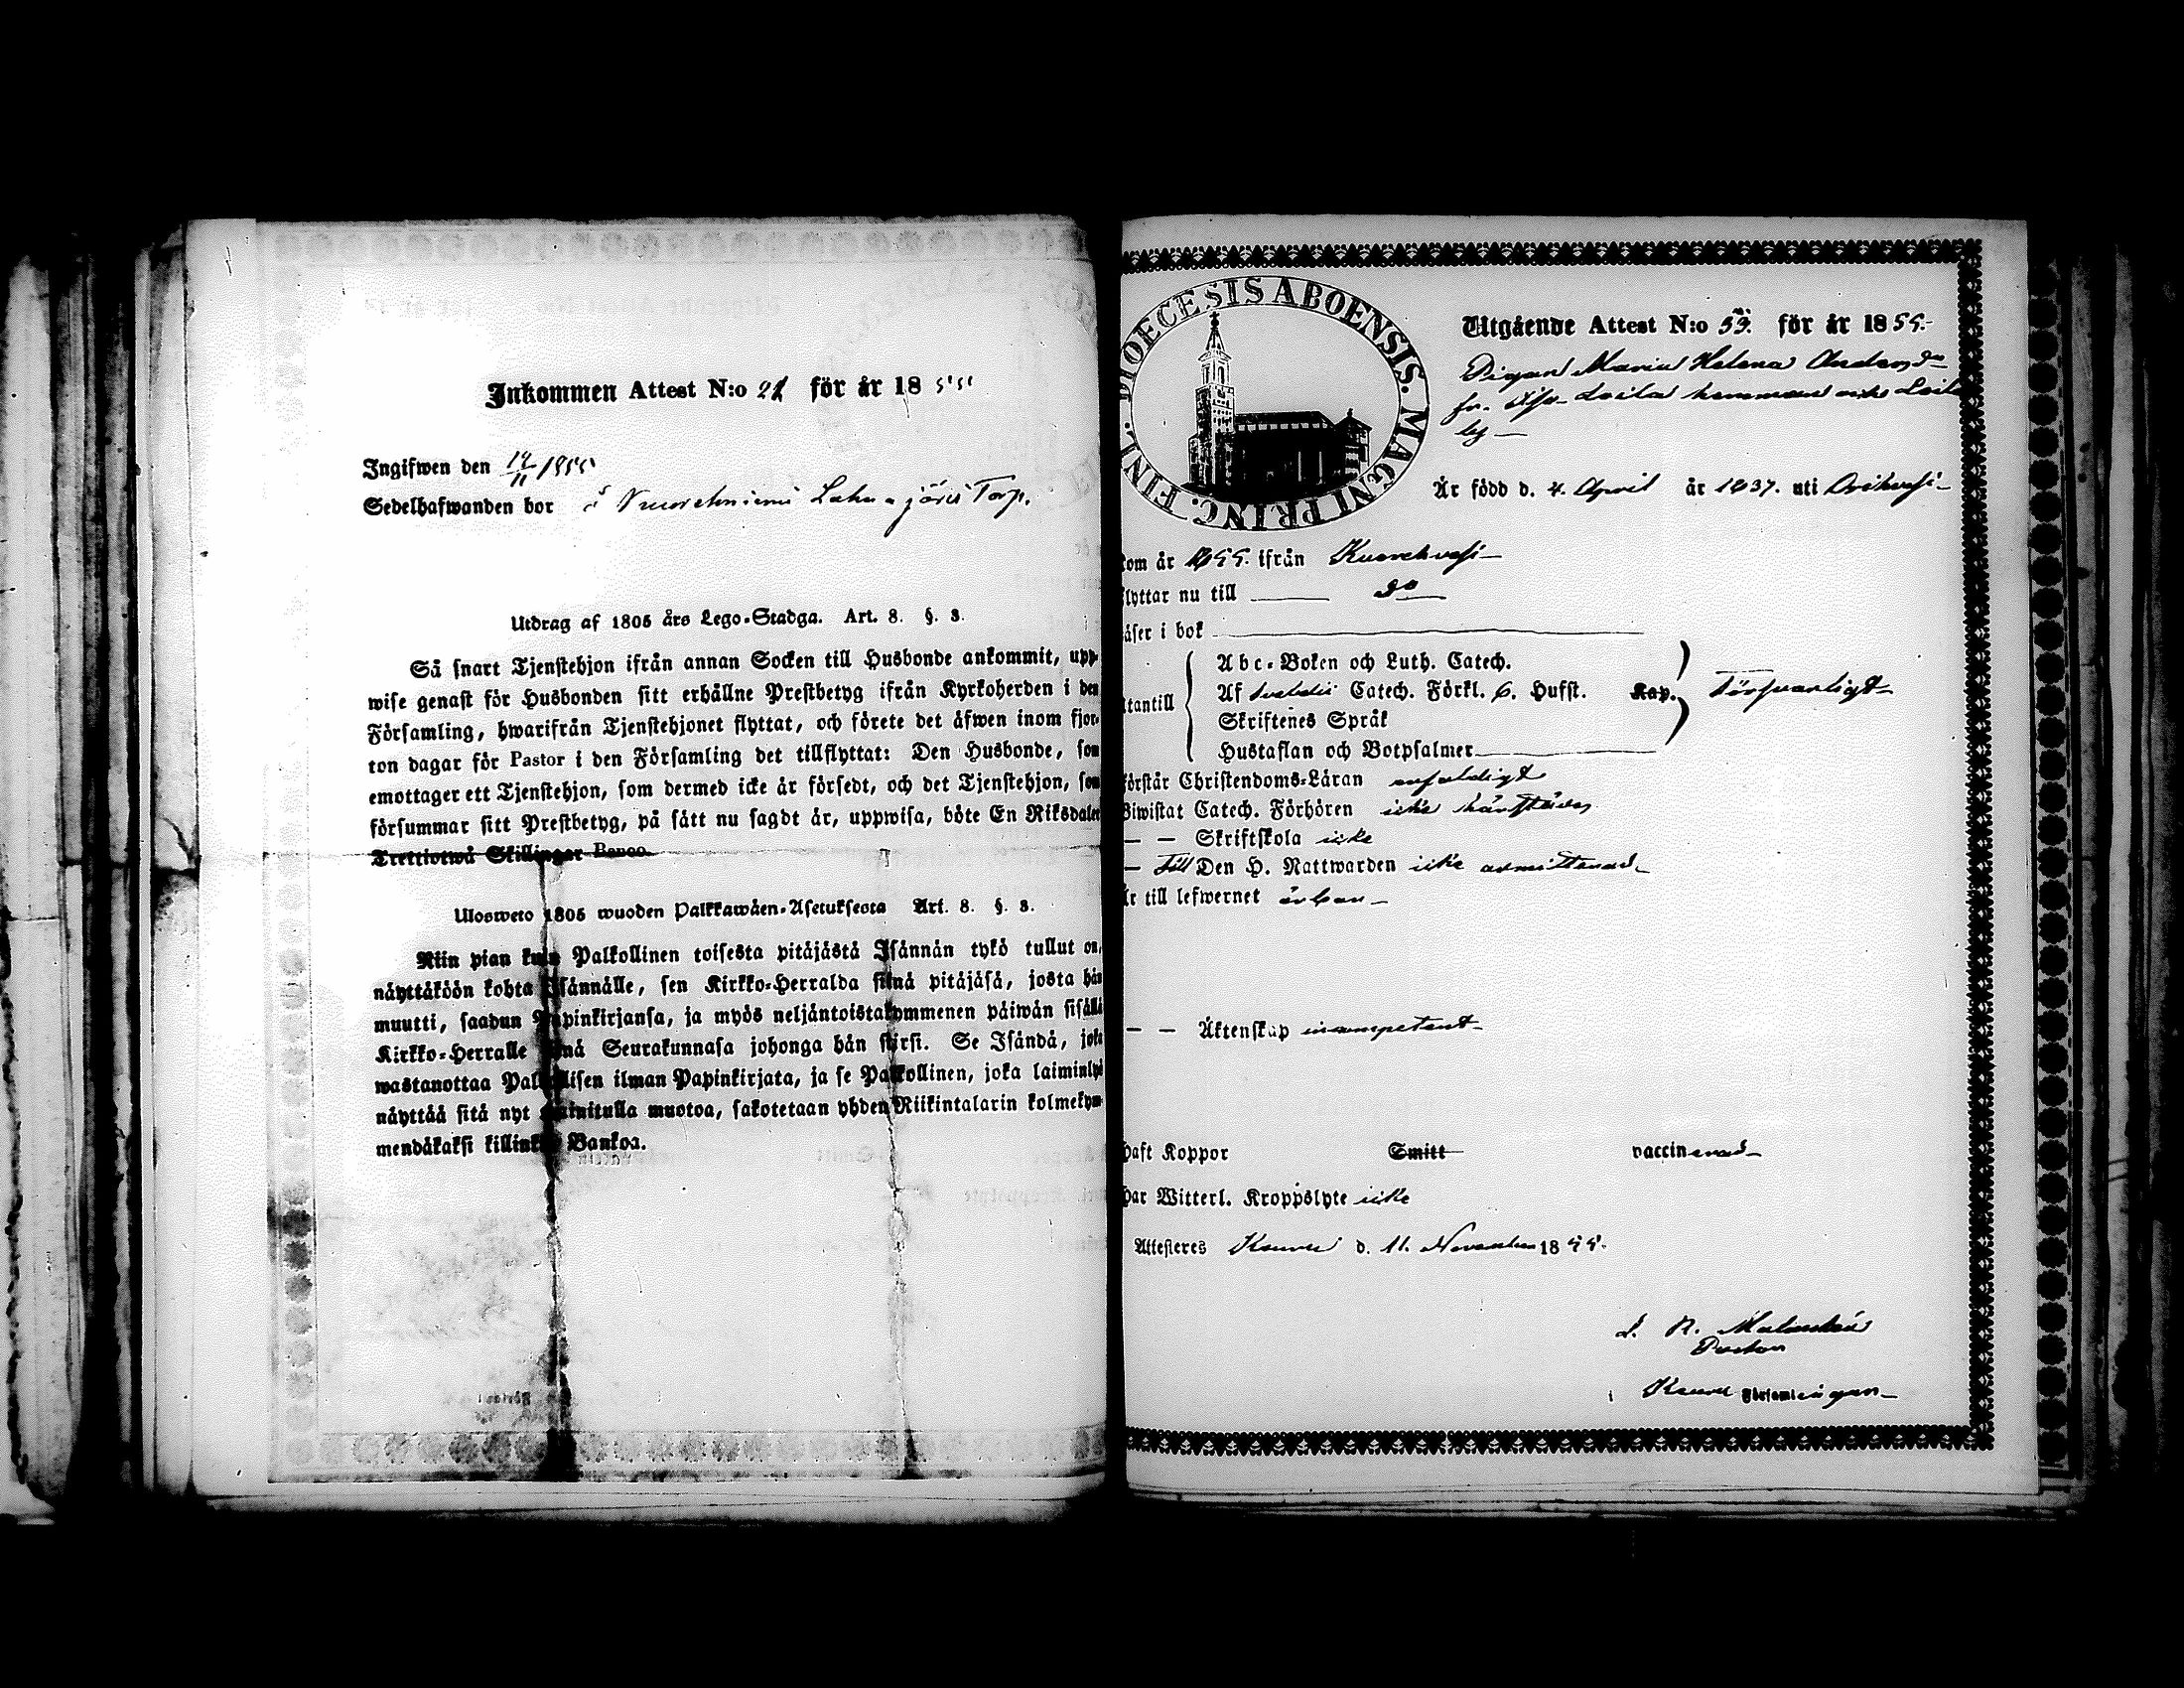 Inkommen Attest N:o 21 för år 1855
Ingifwen den 14/11 1855
Sedelhafwanden bor å Lahnajärvi Torp.
Utdrag af 1805 års Lego-Stadga. Art. 8. §. 3.
Så snart Tjenstehjon ifrån annan Socken till Husbonde ankommit, upp-
wise genast för Husbonden sitt erhållne Prestbetyg ifrån Kyrkoherden i den
Församling, hwarifrån Tjenstehjonet flyttat, och förete det äfwen inom fjor-
ton dagar för Pastor i den Församling det tillflyttat: Den Husbonde, som
emottager ett Tjenstehjon, som dermed icke är försedt, och det Tjenstehjon, som
försummar sitt Prestbetyg, på sått nu sagdt är, uppwisa, böte En Riksdaler
Trettiotwå Skillingar Banco.
Ulosweto 1805 wuoden Palkkawäen-Asetuksesta Art. 8. §. 3.
Niin pian kuin Palkollinen toisesta pitäjästä Isännän tykö tullut on,
näyttäköön kohta Isännälle, sen Kirkko-Herralda siinä pitäjäsä, josta hän
muutti, saadun Papinkirjansa, ja myös neljäntoistakymmenen päiwän sisällä
Kirkko-Herralle siinä Seurakunnasa johonga hän siirsi. Se Isändä, joka
wastanottaa Palkollisen ilman Papinkirjata, ja se Palkollinen, joka laiminlyö
näyttää sitä nyt mainitulla muotoa, sakotetaan yhden Riikintalarin kolmekym-
mendäkaksi killinkiä Bankoa.
DIOECESIS ABOENSIS. MAGNI PRINC. FINL.
Utgående Attest N:o 53. för år 1855.
Pigan Maria Helena Andersdr
fr. Loila hemman Loila
by
Är född d. 4. April år 1837. uti Orihvesi
kom år 1855. ifrån Kuorehvesi
flyttar nu till do
läser i bok
utantill
Abc-Boken och Luth. Catech.
Af Svebelii Catech. Förkl. 6. Hufst. Kap. Försvarligt
Skriftenes Språk
Hustaflan och Botpsalmer
förstår Christendoms-Läran enfaldigt
Biwistat Catech. Förhören icke härstädes
— — Skriftskola icke
— Till Den H. Nattwarden icke admitterad
Är till lefwernet ärbar
— — Äktenskap incompetent
haft Koppor Smitt vaccinerad
har Witterl. Kroppslyte icke
Attesteres Keuru d. 11. November 1855.
Pastor
i Keuru Församlingen